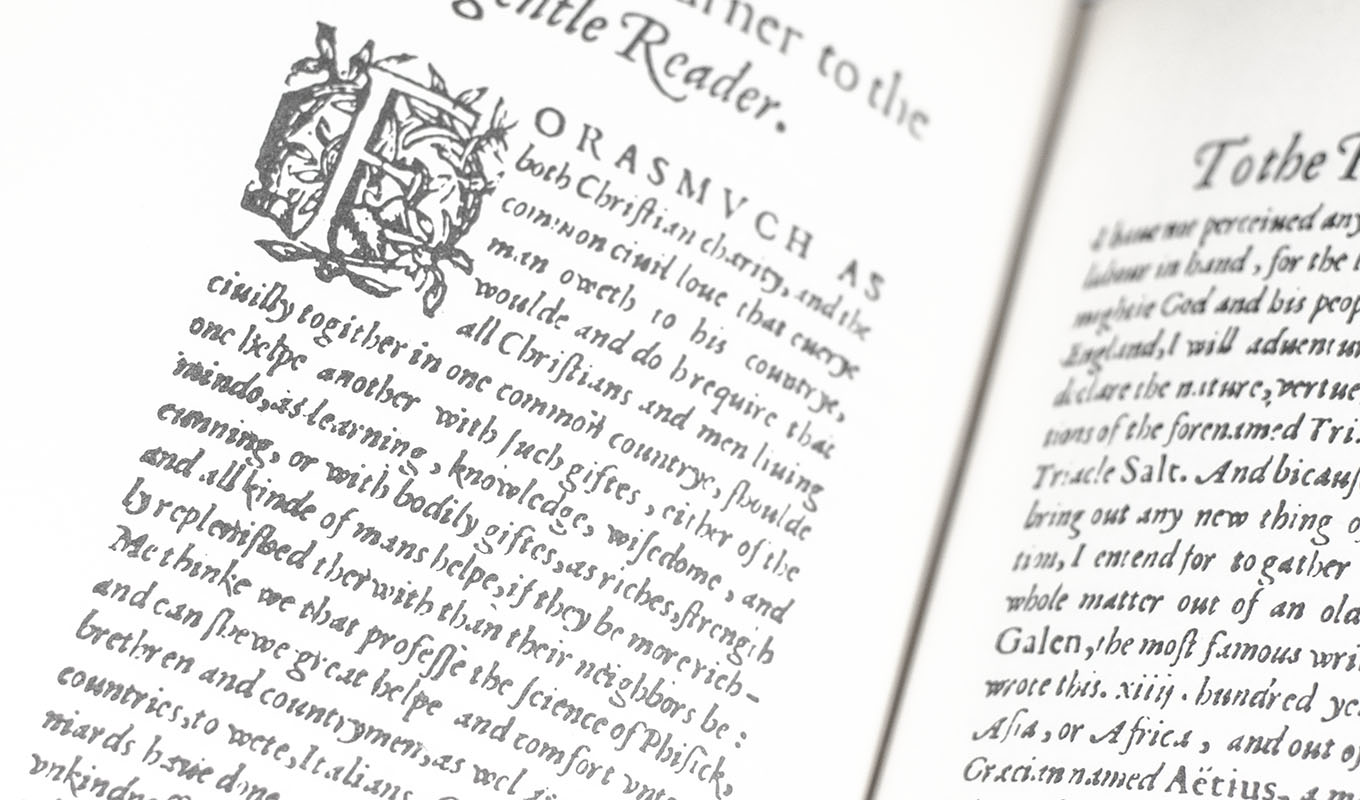 to the
gentle Reader.
FORASMVCH AS
both Chriſtian charity, and the
common ciuil loue that euerye
man oweth to his countrye,
woulde and do hrequire that
all Chriſtians and men liuing
ciuilly togither in one common countrye, ſhoulde
one helpe another with ſuch giftes, either of the
minde, as learning, knowledge, wiſedome, and
cunning, or with bodily giftes, as riches, ſtrength
and all kinde of mans helpe, if they be more rich-
ly repleniſhed therwith than their neighbors be:
Me thinke we that profeſſe the ſcience of Phiſick,
and can ſhewe great helpe and comfort vnto
brethren and countrymen, as wel
countries, to wete, Italians
niards haue done
To the
I haue not perceiued any
labour in hand, for the
mightie God and his
England, I will
declare the nature, vertue
tions of the forenamed
Triacle Salt. And
bring out any new thing
tion, I entend for to gather
whole matter out of an
Galen, the moſt famous
wrote this. xiiij. hundred
Aſia, or Africa, and out
Grecian named Aëtius,